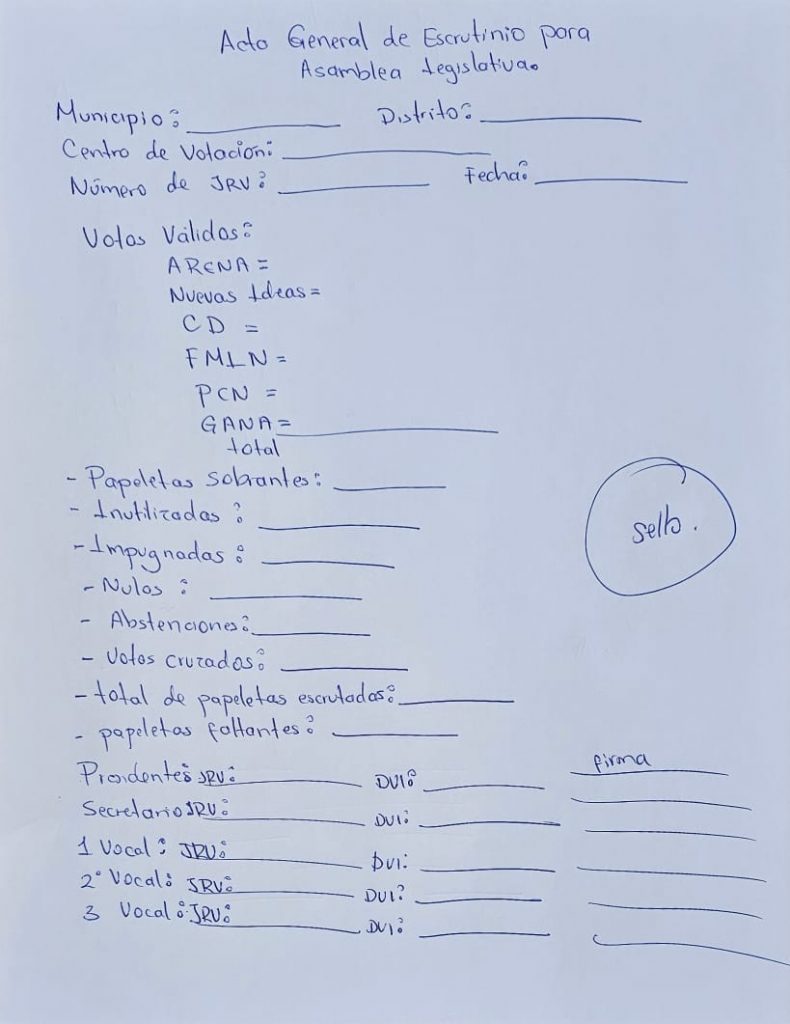 Acta General de Escrutinio para
Asamblea Legislativa.
Municipio: Distrito:
Centro de Votación:
Número de JRV: Fecha:
Votos Válidos:
ARENA =
Nuevas Ideas =
CD =
FMLN =
PCN =
GANA =
total
- Papeletas sobrantes:
- Inutilizadas :
- Impugnadas :
- Nulos :
- Abstenciones:
- Votos cruzados:
- total de papeletas escrutadas:
- papeletas faltantes:
sello.
firma
Presidentes JRV: DUI:
Secretario JRV: DUI:
1 Vocal: JRV: DUI:
2° Vocal: JRV: DUI:
3 Vocal: JRV: DUI: